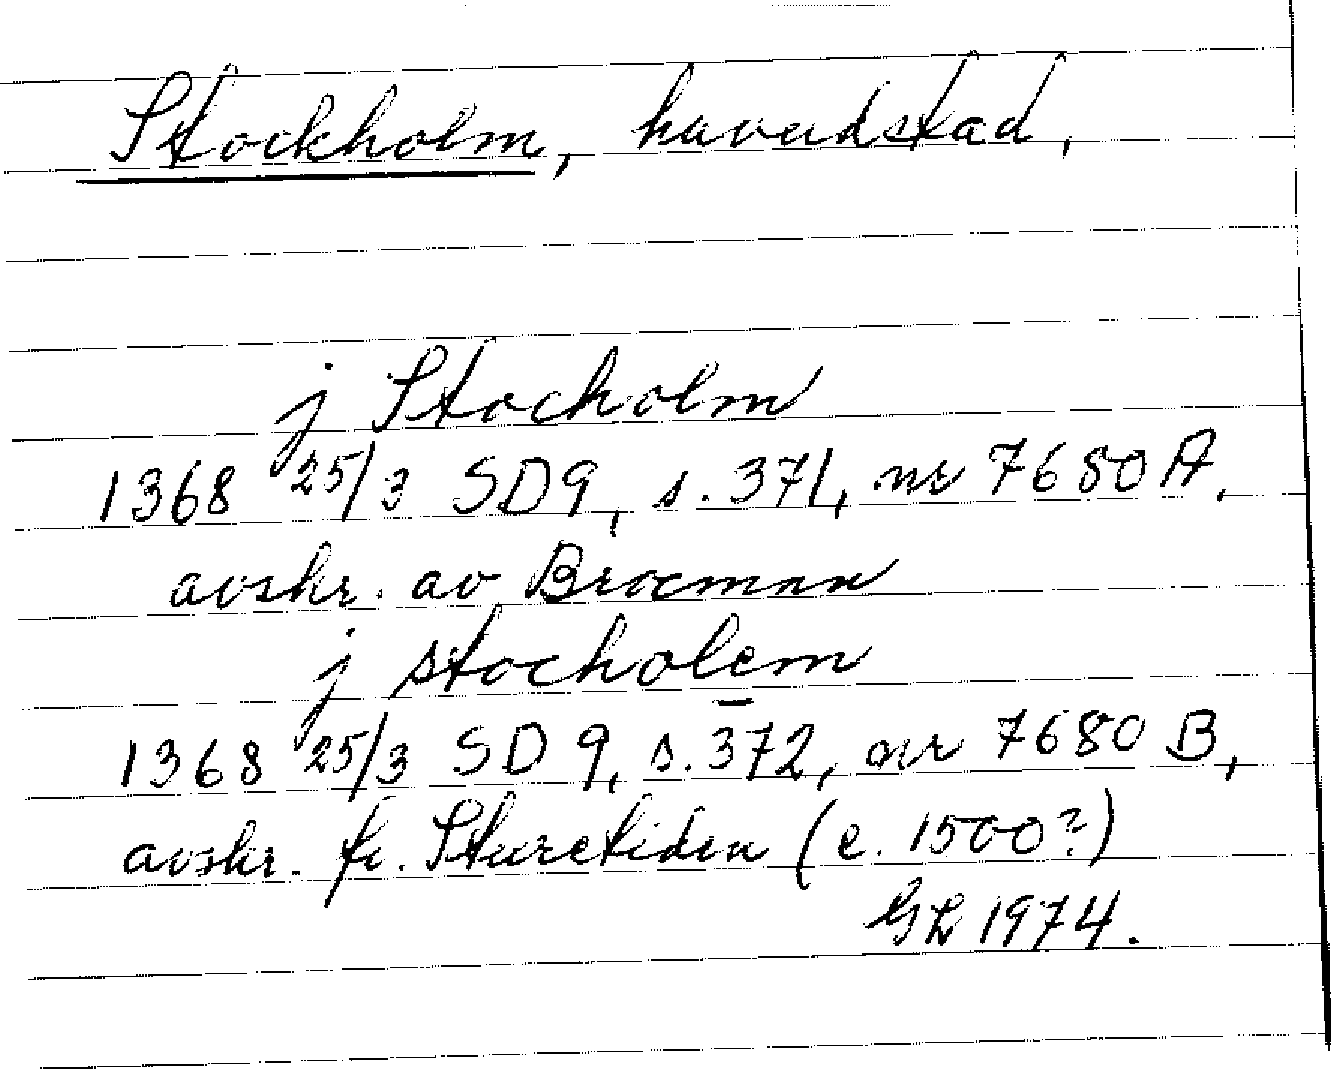 Stockholm, huvudstad,
j Stocholm
1368 25/3 SD9, s. 371, nr 7680 A,
avskr. av Brocman
j stocholem
1368 25/3 SD 9, s. 372, nr 7680 B,
avskr. fr. Sturetiden (c. 1500?)
GL 1974.